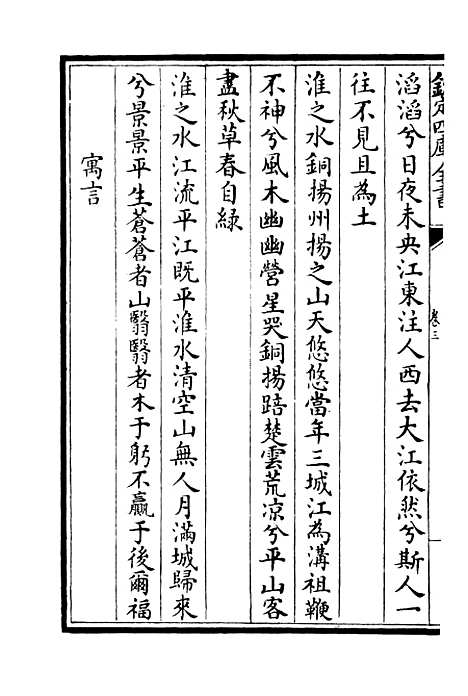 欽定四庫全書
卷三
滔滔兮日夜未央江東注人西去大江依然兮斯人一
往不見且為土
淮之水銅揚州揚之山天悠悠當年三城江為溝祖鞭
不神兮風木幽幽營星哭銅揚踣楚雲荒凉兮平山客
盡秋草春自緑
淮之水江流平江既平淮水清空山無人月滿城歸來
兮景景平生蒼蒼者山翳翳者木于躬不贏于後爾福
寓言